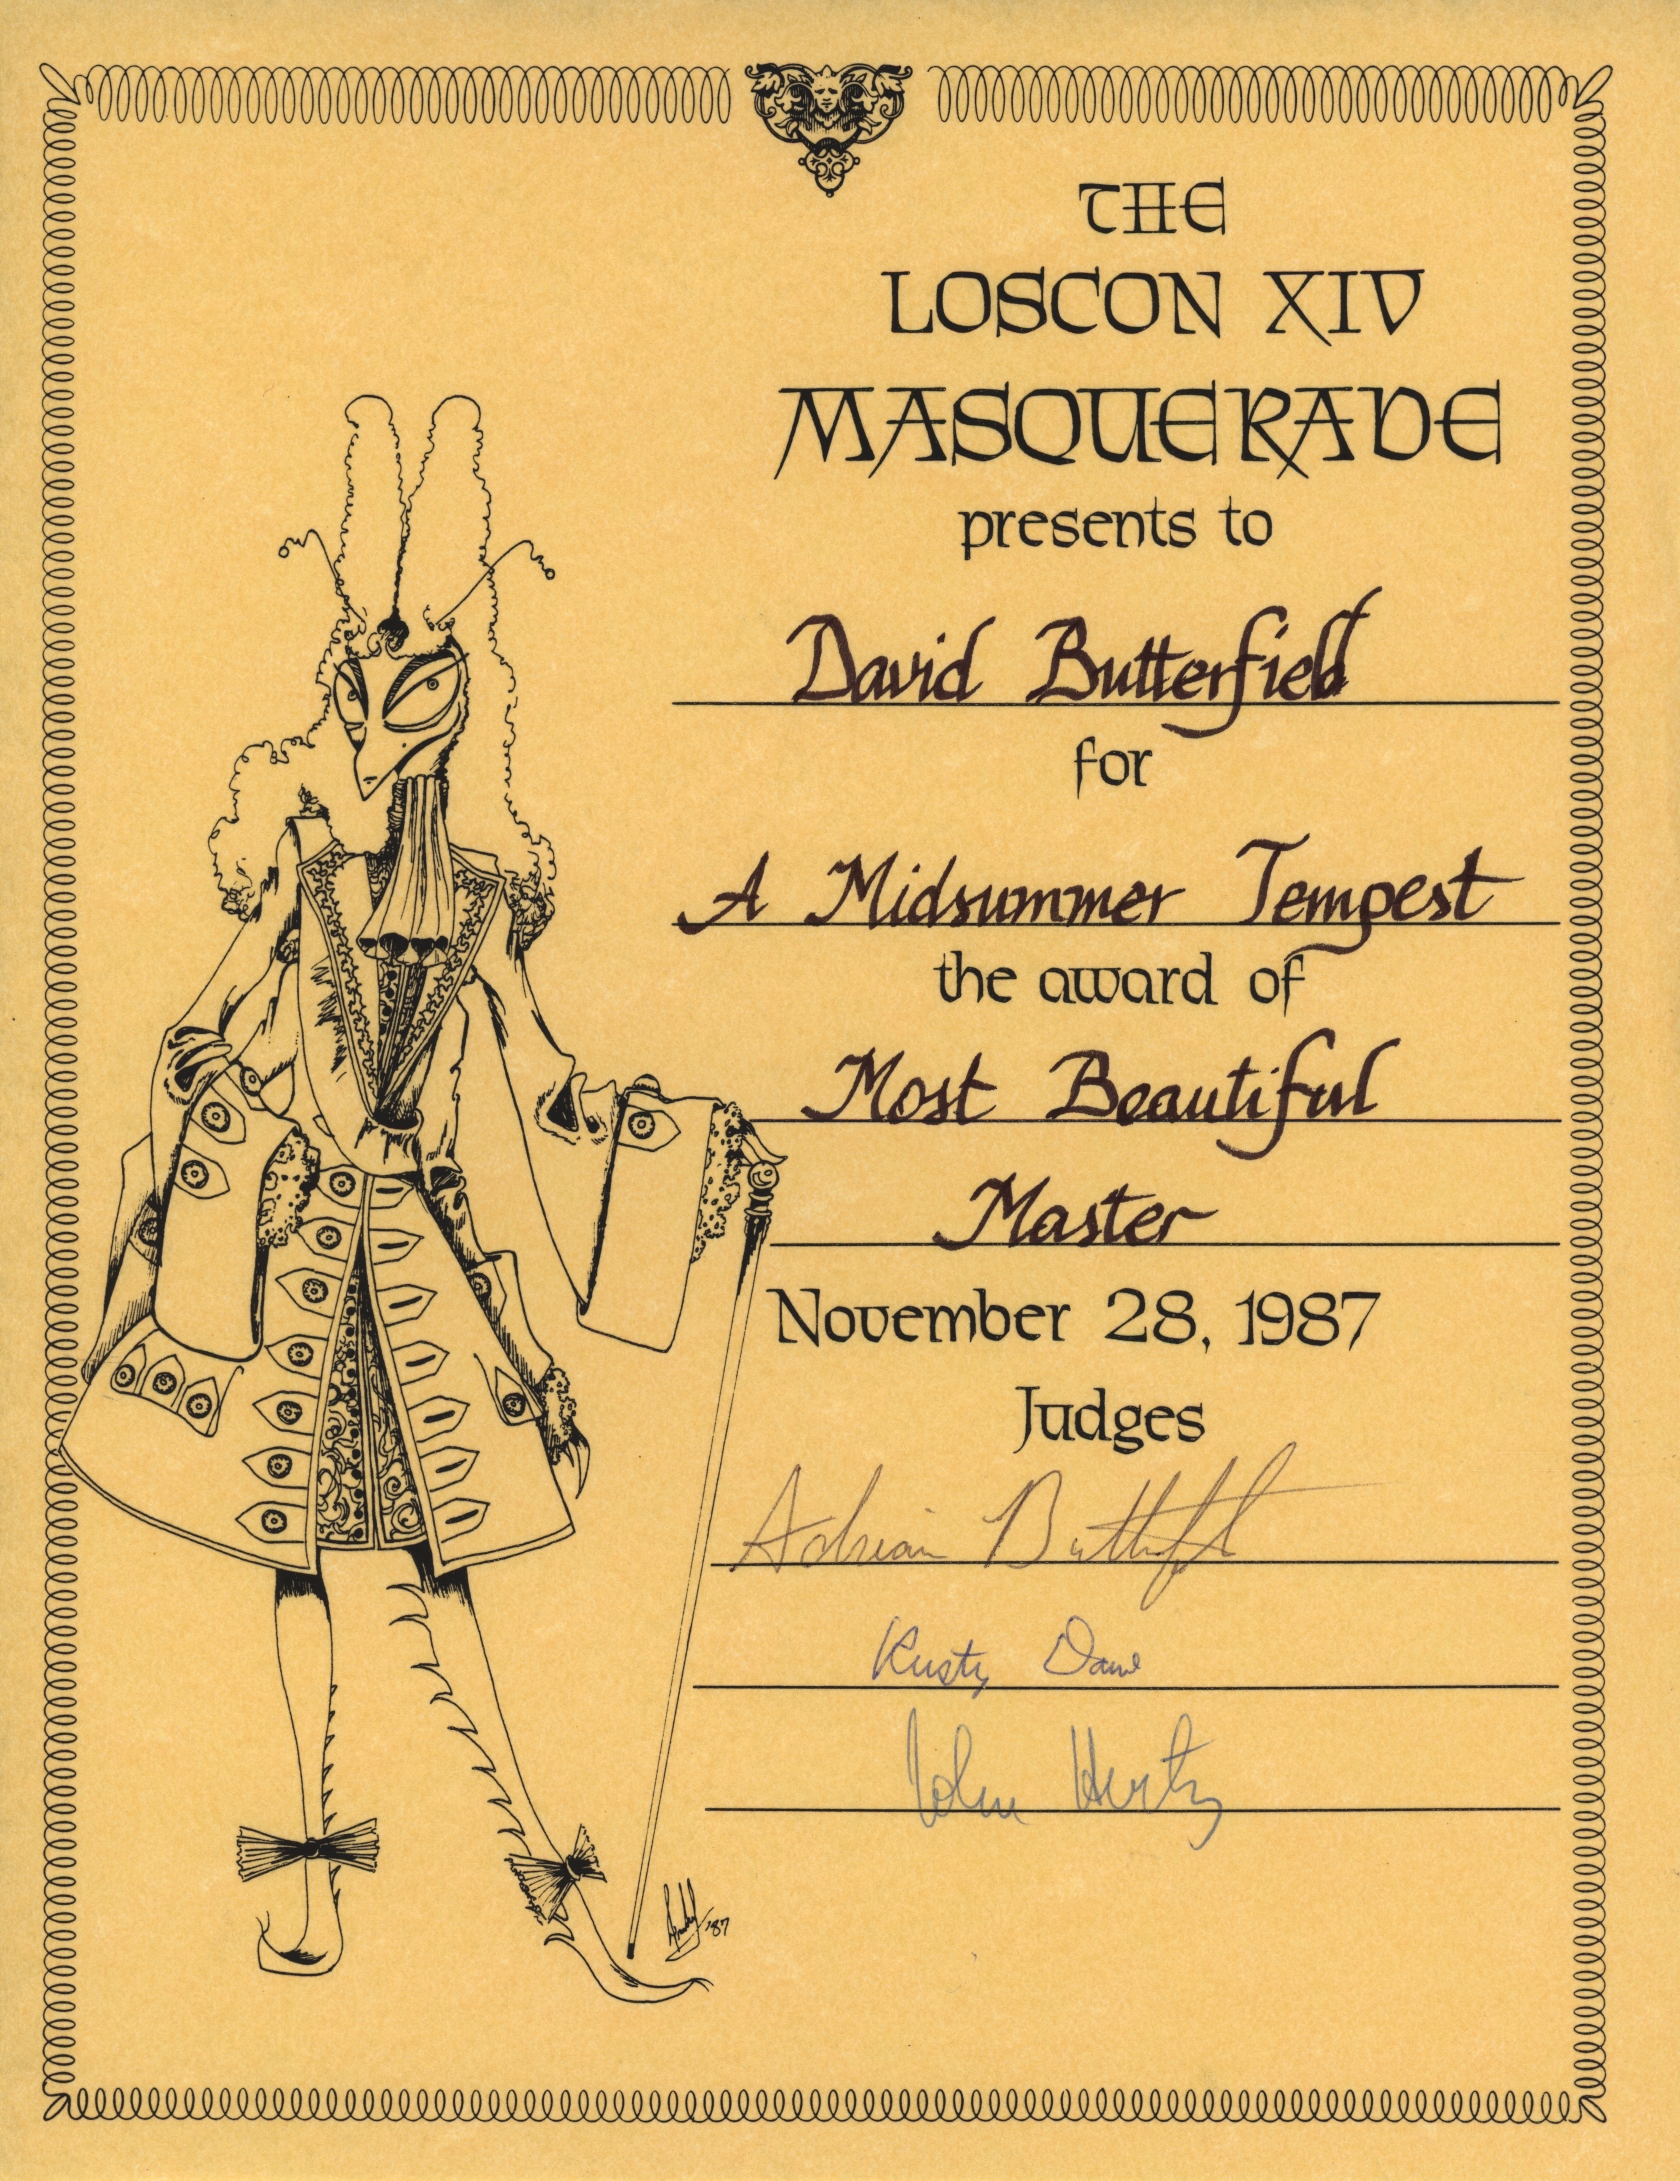 THE
LOSCON XIV
MASQUERADE
presents to
David Butterfield
for
A Midsummer Tempest
the award of
Most Beautiful
Master
November 28, 1987
Judges
Adrian Butterfield
Rusty Dawe
John Hertz
'87